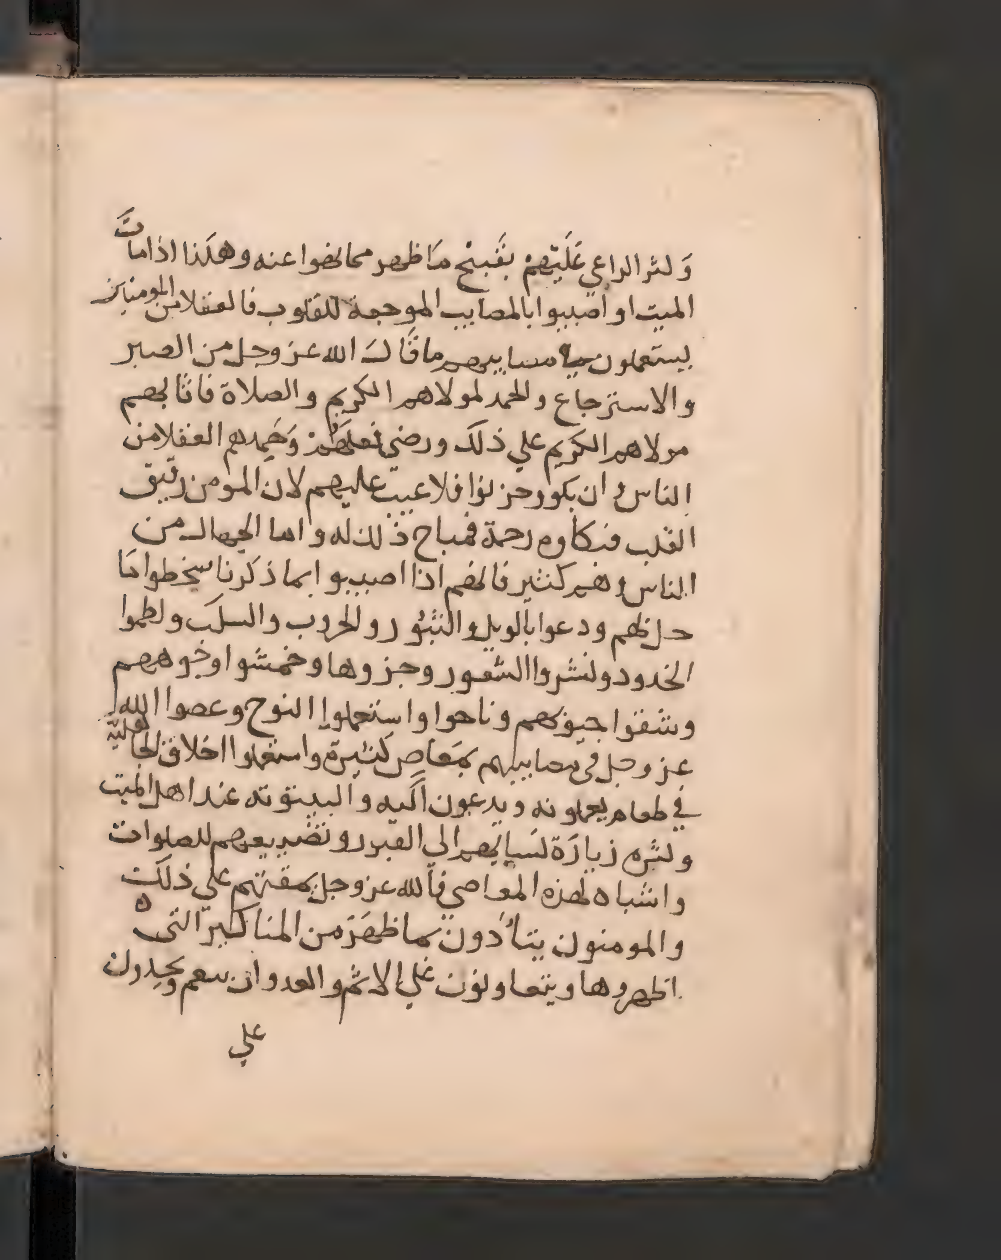 وكثر الداعي عليهم بقبيح ما ظهر مما نهوا عنه وهكذا اذا مات
الميت او أصيبوا بالمصايب الموجعة للقلوب فالعقلا من المومنين
يستعملون في مصايبهم ما قال الله عز وجل من الصبر
والاسترجاع والحمد لمولاهم الكريم والصلاة فاثابهم
مولاهم الكريم علي ذلك ورضى فعلهم وحمدهم العقلا من
الناس وان بكوا وحزنوا فلا عيب عليهم لان المومن رقيق
القلب فبكاوه رحمة فمباح ذلك له واما الجهال من
الناس وهم كثير فانهم اذا اصيبوا بما ذكرنا سخطوا ما
حل بهم ودعوا بالويل والثبور والحروب والسلب ولطموا
الخدود ونشروا الشعور وجزوها وخمشوا وجوههم
وشقوا جيوبهم وناحوا واستعملوا النوح وعصوا الله
عز وجل في مصايبهم بمعاص كثيرة واستعملوا اخلاق الجاهلية
في طعام يعملونه ويدعون اليه والبيتوته عند اهل الميت
وكثره زيارة نسايهم الي القبور وتضييعهم للصلوات
واشباه لهذه المعاصي فالله عز وجل يمقتهم علي ذلك
والمومنون يتأذون بما ظهر من المناكير التي
اظهروها ويتعاونون علي الاثم والعدوان نعم ويجدون
علي